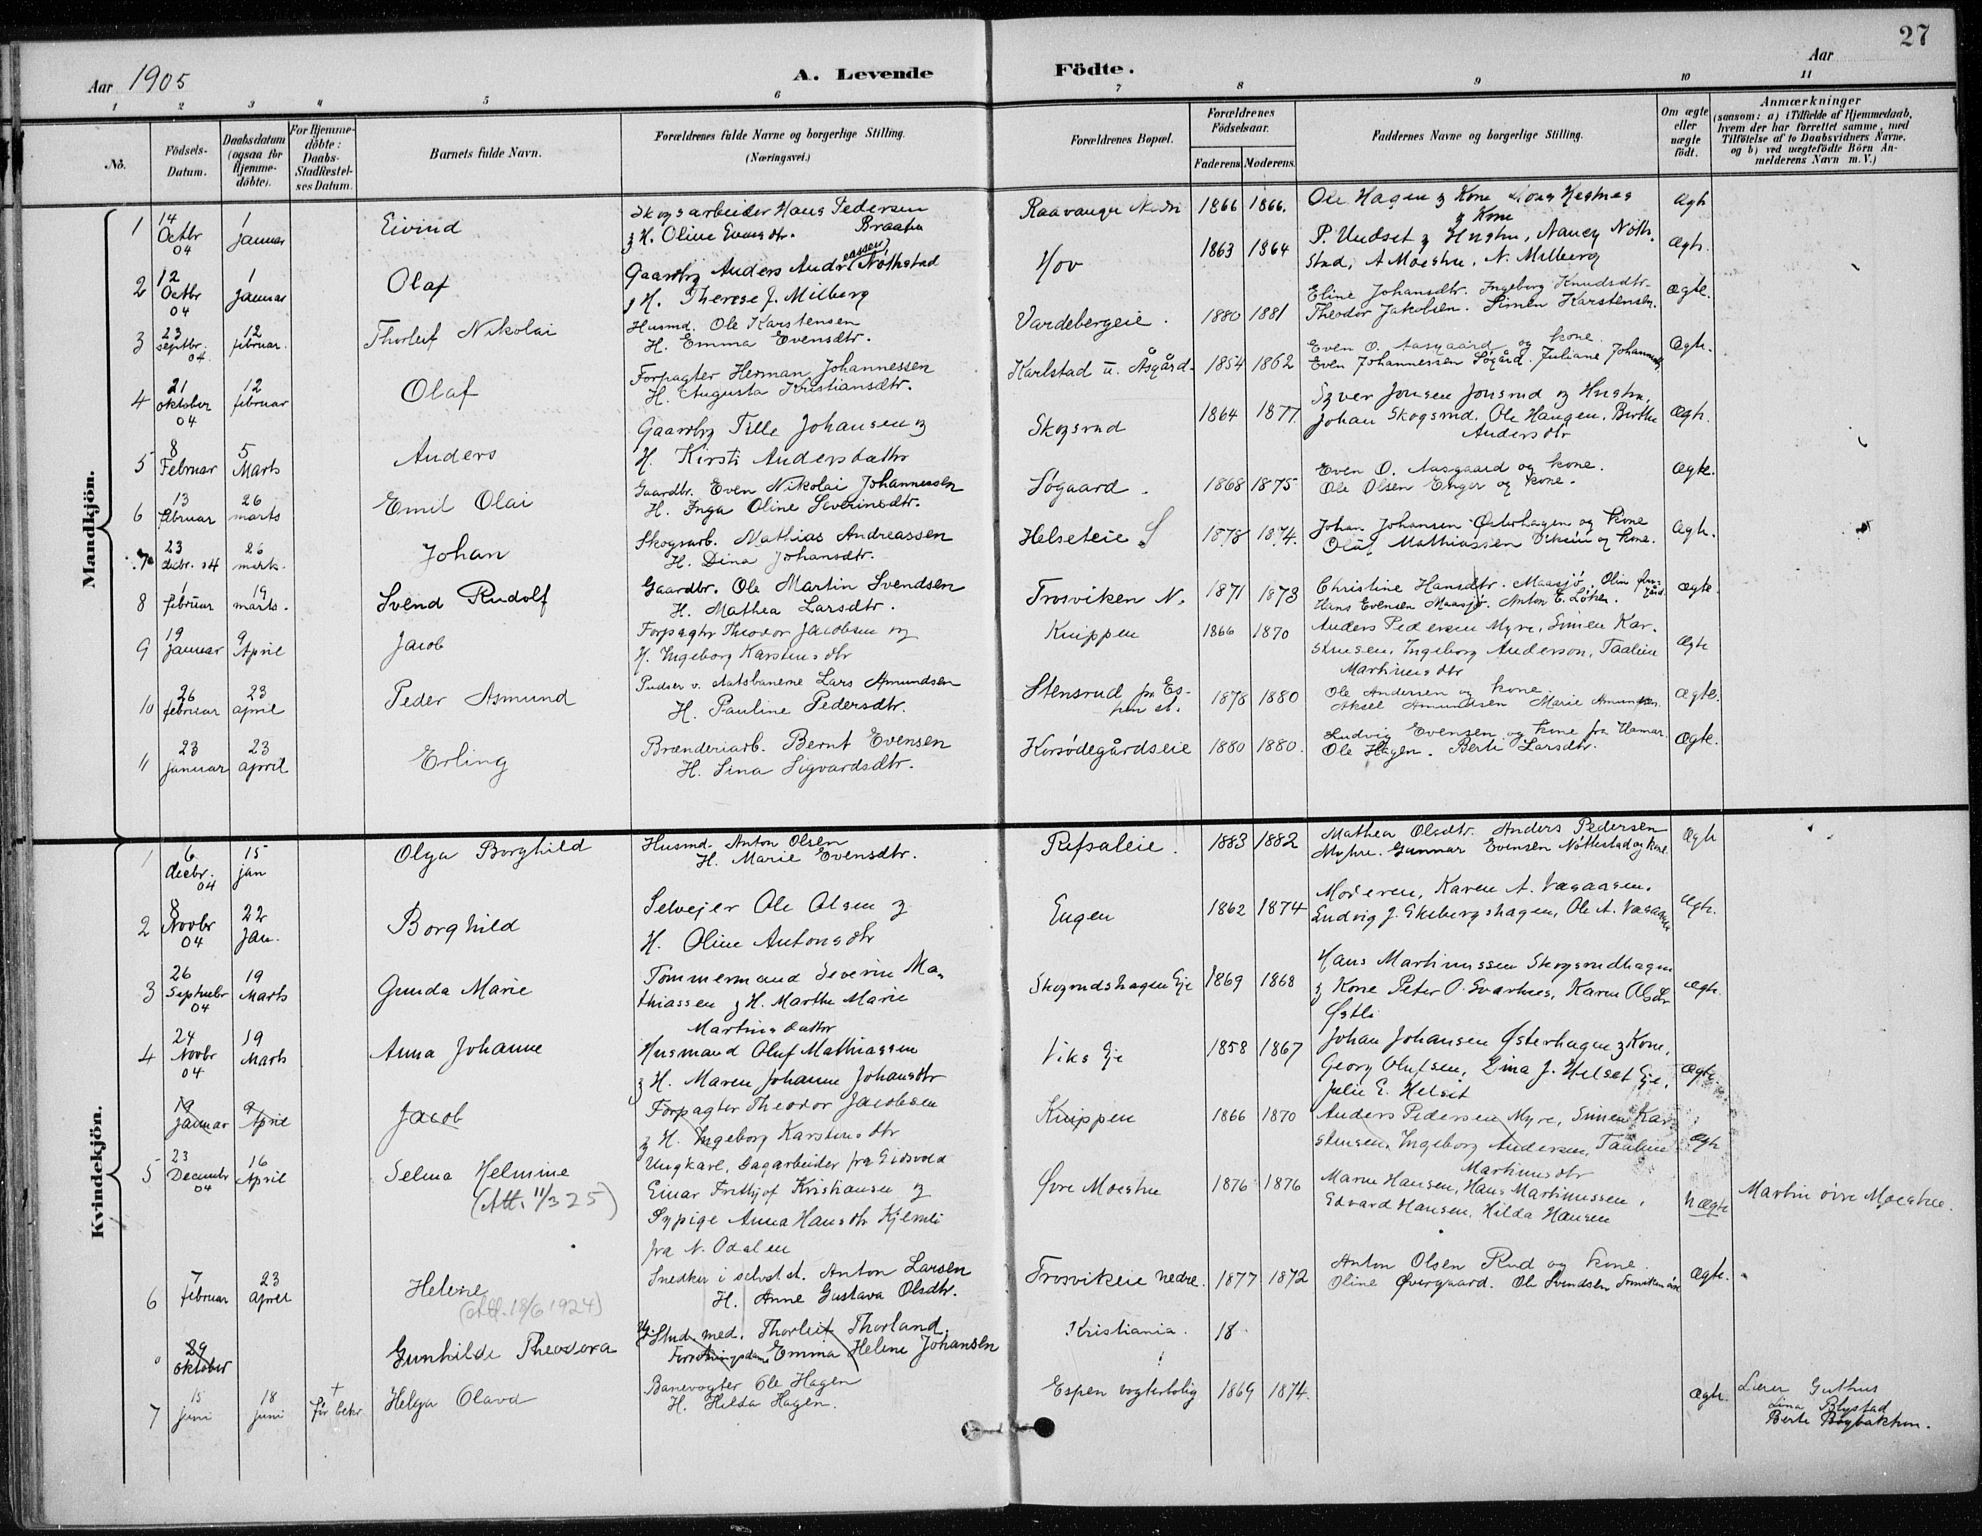 27
Aar 1905
A. Levende Födte.
Aar
1 2 3 4 5 6 7 8 9 10 11
No.
Födsels-Datum.
Daabsdatum (ogsaa for Hjemme-döbte).
For Hjemme-döbte: Daabs-Stadfæstel-ses Datum.
Barnets fulde Navn.
Forældrenes fulde Navne og borgerlige Stilling. (Næringsvei.)
Forældrenes Bopæl.
Forældrenes Födselsaar.
Faderens. Moderens.
Faddernes Navne og borgerlige Stilling.
Om ægte eller uægte födt.
Anmærkninger (saasom: a) i Tilfælde af Hjemmedaab, hvem der har forrettet samme, med Tilföielse af to Daabsvidners Navne, og b) ved uægtefödte Börn Anmelderens Navn m. V.)
Mandkjön.
1 14 Octbr 04 1 Januar Eivind Skogsarbeider Hans Pedersen Braaten
& H. Oline Evensdtr. Raavangen Nedre 1866 1866. Ole Hagen & Kone & Kone Ægte
2 12 Octbr 04 1 Januar Olaf Gaardbr Anders Andreassen Nöthstad
& H. Therese J. Milberg Hov 1863 1864 P. Undset & Hustru, Nancy Nöth-
stad, A Moestue, N. Milberg Ægte.
3 23 Septbr. 04 12 februar. Thorleif Nikolai Husmd. Ole Karstensen
H. Emma Evensdtr. Vardebergeie. 1880 1881 Eline Johansdtr. Ingeborg Knudsdtr.
Theodor Jakobsen. Simen Karstensen. Ægte.
4 21 oktober 04 12 februar Olaf Forpagter Herman Johannessen
H. Augusta Kristiansdtr. Karlstad u. Åsgård. 1854 1862 Even O. Aasgaard og kone.
Even Johannessen Søgård. Juliane Ægte.
5 8 Februar 5 Marts Anders Gaardbr Tille Johansen og
H. Kirsti Andersdatter Skogsrud 1864 1877. Syver Jonsen Jonsrud og Hustru,
Johan Skogsrud, Ole Haugen, Birthe
Andersdtr Ægte.
6 13 februar 26 marts Emil Olai Gaardbr. Even Nikolai Johannessen
H. Inga Oline Severinsdtr. Søgaard. 1868 1875 Even O. Aasgaard og kone.
Ole Olsen Enger og kone. Ægte.
7 23 decbr. 04 26 marts. Johan Skogsarb. Mathias Andreassen
H. Dina Johansdtr. Helseteie S 1878 1874. Johan Johansen Østerhagen og Kone
Oluf Mathiassen og kone. Ægte.
8 1 februar 19 marts. Svend Rudolf Gaardbr. Ole Martin Svendsen
H. Mathea Larsdtr. Trosviken N. 1871 1873 Christine Hansdtr. Maasjø. Olin
Hans Evensen Maasjø. Anton E. Løken. Ægte.
9 19 Januar 9 April Jacob Forpagtr Theodor Jacobsen og
H. Ingeborg Karstensdtr Knippen 1866 1870 Anders Pedersen Myre, Simen Kar-
stensen, Ingeborg Anderson, Taaline
Martinusdtr Ægte
10 26 februar 23 april Peder Asmund Pudser v. statsbanerne Lars Amundsen
H. Pauline Pedersdtr. Stensrud pr. Es-
pen st. 1878 1880 Ole Andersen og kone.
Aksel Amundsen Marie Amundsen. Ægte.
11 23 januar 23 april Erling Brænderiarb. Bernt Evensen
H. Lina Sigvardsdtr. Korsödegårdseie 1880 1880. Ludvig Evensen og kone fra Hamar.
Ole Hagen. Berte Larsdtr. Ægte.
Kvindekjön.
1 6 decbr. 04 15 jan Olga Borghild Husmd. Anton Olsen
H. Marie Evensdtr. Refsaleie. 1883 1882 Mathea Olsdtr. Anders Pedersen
Myhre. Gunnar Evensen Nøttestad og kone Ægte
2 8 Novbr 04 22 Jan. Borghild Selveier Ole Olsen &
H. Oline Antonsdtr Engen 1862 1874 Moderen, Karen A. Vasaasen.
Ludvig J. Ekebergshagen, Ole A. Vasaasen Ægte.
3 26 Septbr 04 19 Marts Gunda Marie Tömmermand Severin Ma-
thiassen & H. Marthe Marie
Martinsdatter Skogsrudshagen Eje 1869 1868 Hans Martinussen Skogsrudhagen
& Kone Peter O. Svartnes, Karen Olsdtr
Østli Ægte.
4 24 Novbr 04 19 Marts Anna Johanne Husmand Oluf Mathiassen
& H. Maren Johanne Johansdtr Viks Eje 1858 1867 Johan Johansen Østerhagen & Kone,
Georg Olufsen, Lina J. Helset Eje,
Julie E. Helset Ægte.
19 Januar 9 April Jacob Forpagter Theodor Jacobsen
& H. Ingeborg Karstensdtr Knippen 1866 1870 Anders Pedersen Myre, Simen Kar-
stensen, Ingeborg Andersen, Taaline
Martinusdtr Ægte
5 23 Decembr 04 16 April Selma Helmine
(Att. 11/3 25) Ungkarl, Dagarbeider fra Eidsvold
Einar Frithjof Kristiansen og
Sypige Anna Hansdtr Kjemli
fra N. Odalen Øvre Moestue 1876 1876 Maren Hansen, Hans Martinussen,
Edvard Hansen, Hilda Hansen Uægte Martin övre Moestue.
6 7 februar 23 april Helene
(Att. 18/6 1924) Snedker i selvst st. Anton Larsen
H. Anne Gustava Olsdtr. Trosvikeie nedre. 1877 1872 Anton Olsen Rud og kone.
Oline Øvergaard. Ole Svendsen Ægte.
29 oktober Gunhilde Theodora Stud. med. Thorleif Thorland.
Emma Helene Johansen Kristiania. 18
7 15 juni 18 juni + før bekr. Helga Olava Banevogter Ole Hagen
H. Hilda Hagen. Espen vogterbolig 1869 1874. Ægte. Lærer Guthus
Lina Blystad
Berte Bybakken.